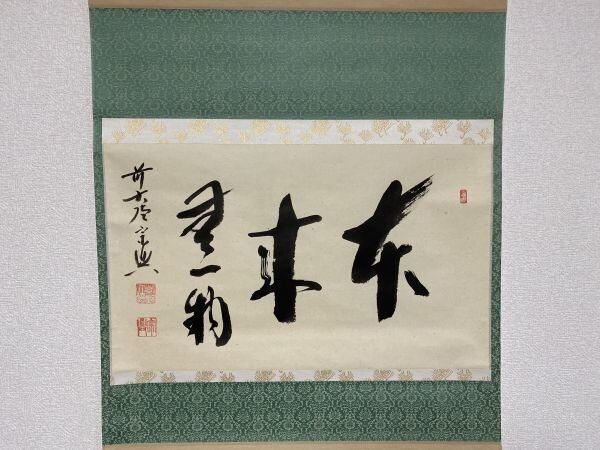 本
来
無一物
前大徳宗興